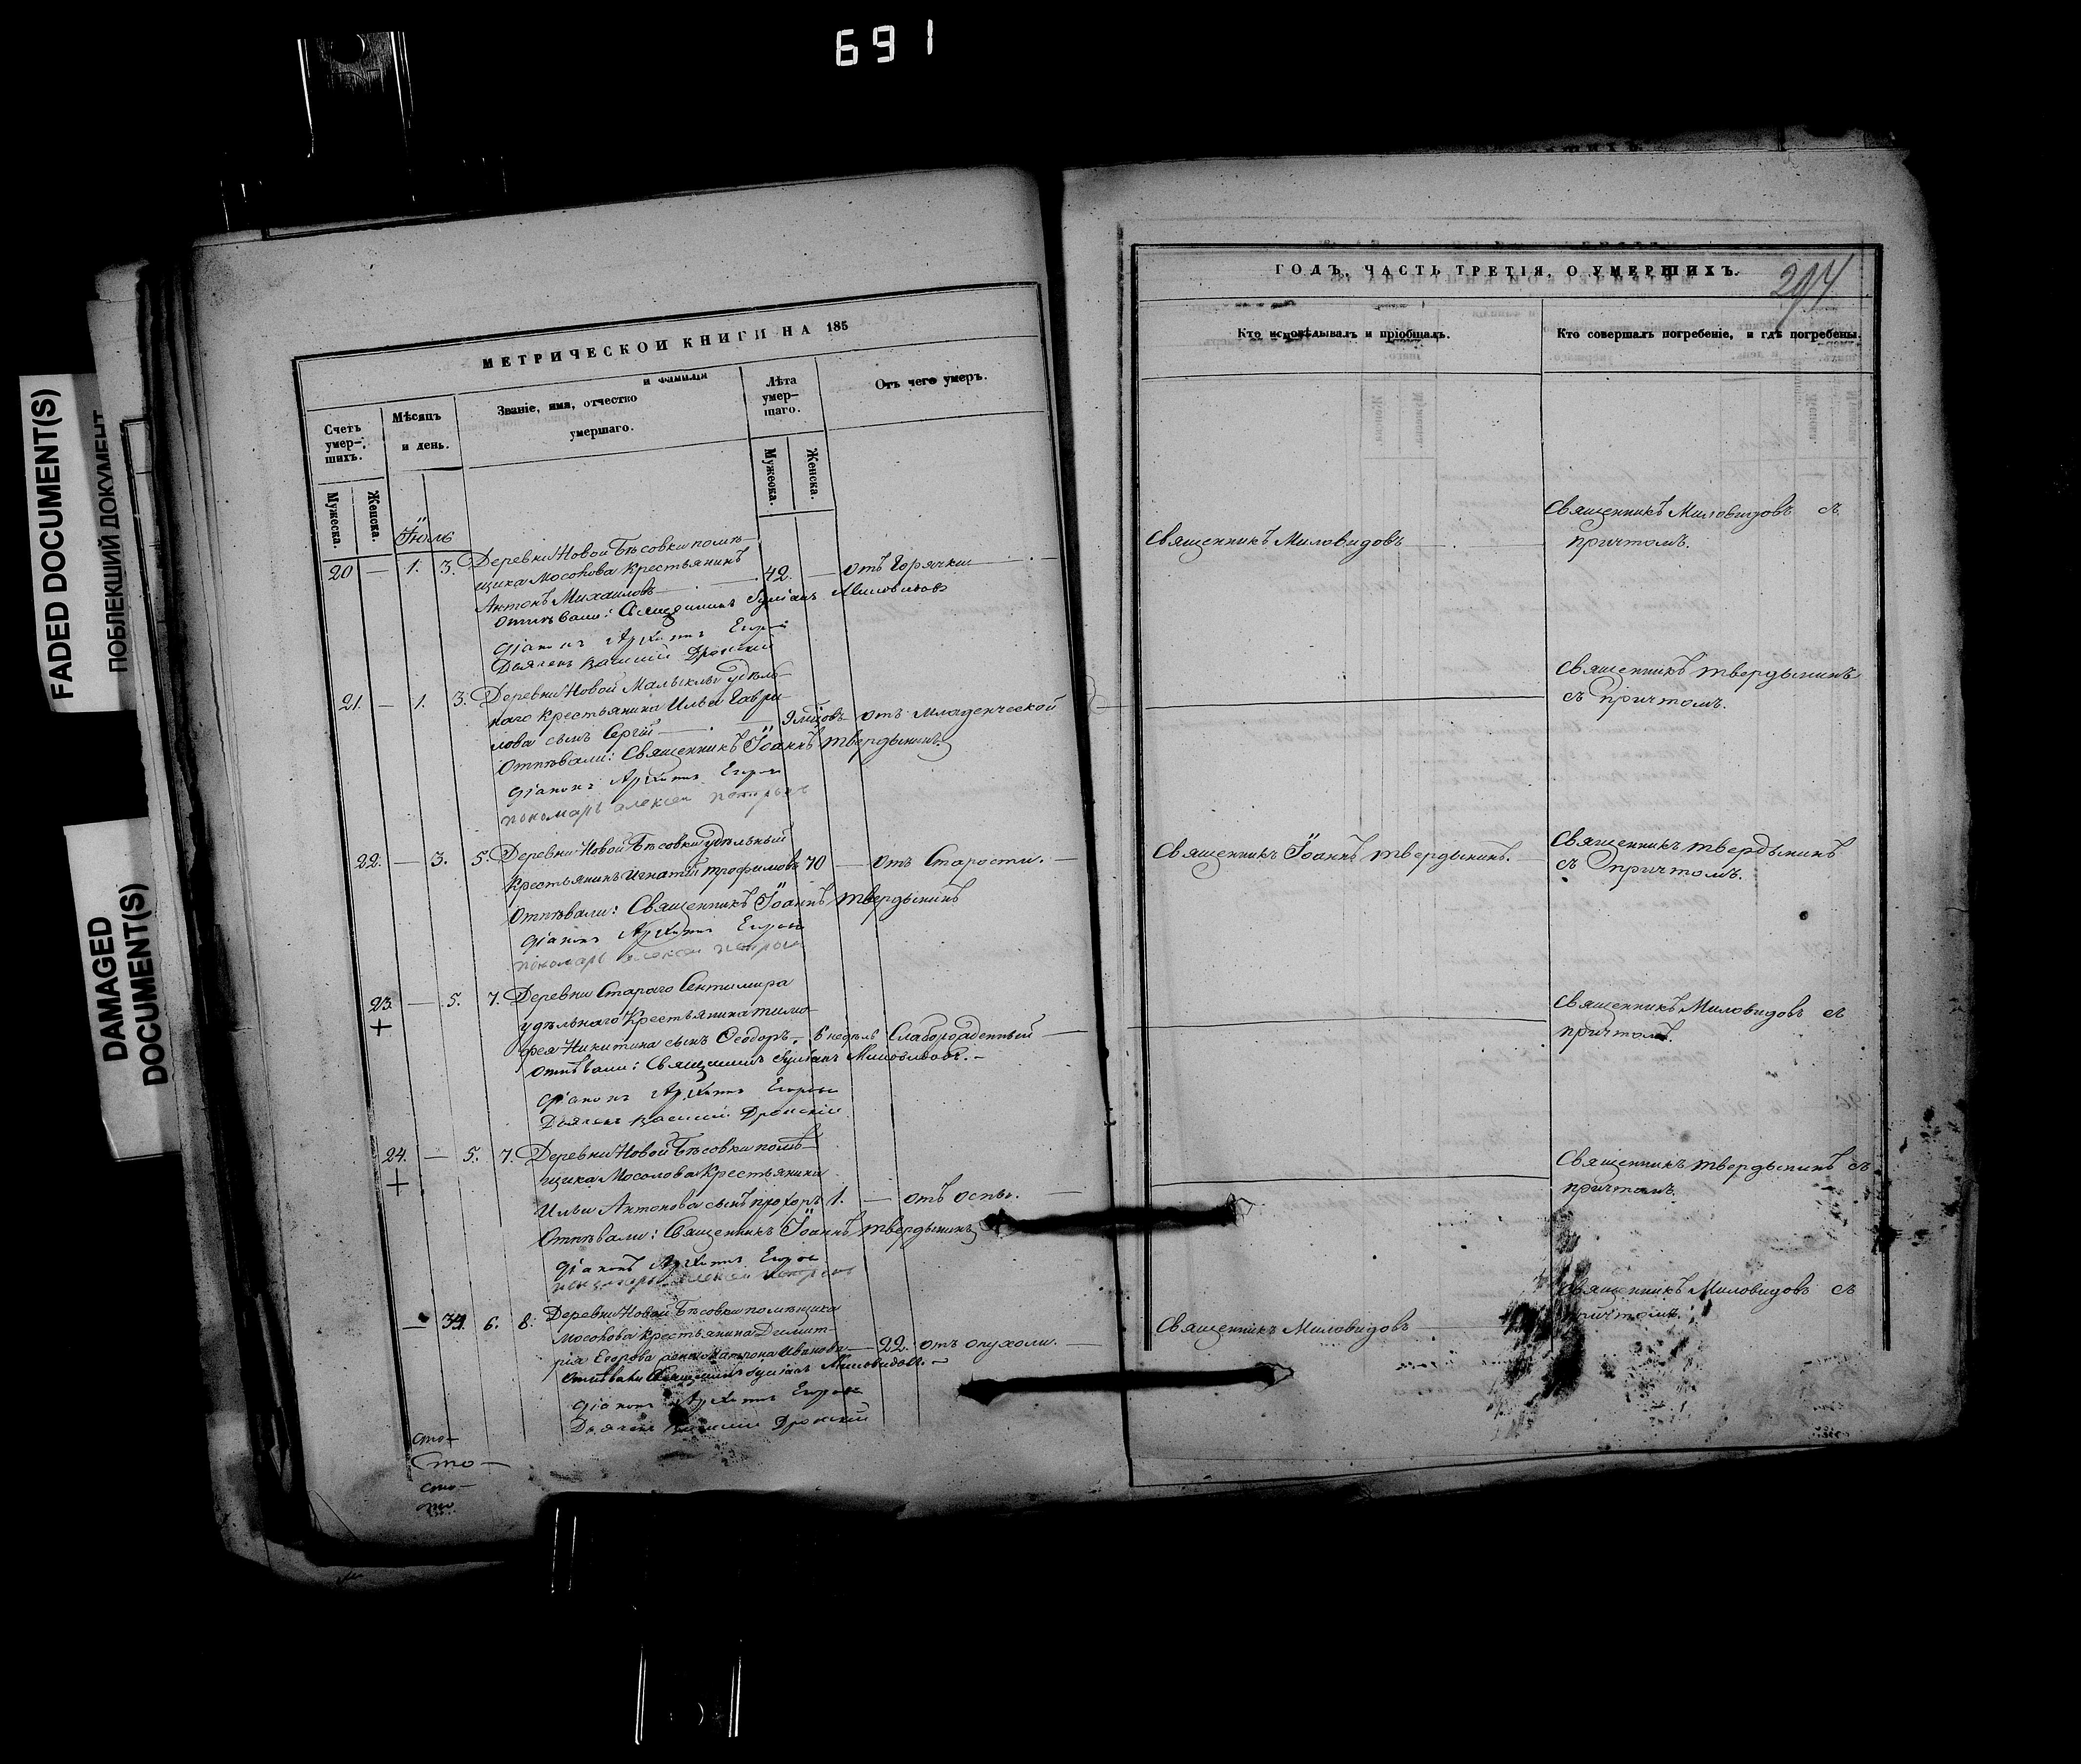 691
FADED DOCUMENT(S)
ПОБЛЕКЩИЙ ДОКУМЕНТ
DAMAGED
DOCUMENT(S)
МЕТРИЧЕСКОЙ КНИГИ НА 185
Счетъ умер-шихъ.
Мѣсяцъ и день.
Званіе, имя, отчество и фамилія умершаго.
Лѣта умер-шаго.
Отъ чего умеръ.
Мужеска.
Женска.
Мужеска.
Женска.
Іюль
20 — 1. 3. Деревни Новой Бѣсовки помѣ-
щика Мосолова Крестьянинъ
Антонъ Михаиловъ — 42. — отъ Горячки
Отпѣвали: Священникъ Миловидовъ
Діаконъ Архипъ Егоровъ
Дьячекъ Василій Дронскій
21. — 1. 3. Деревни Новой Малыклы удѣль-
наго Крестьянина Ильи Гаври-
лова сынъ Сергій — 9 мцовъ — отъ младенческой
Отпѣвали: Священникъ Іоаннъ Твердынинъ
Діаконъ Архипъ Егоровъ
пономарь алексеи петровъ
22. — 3. 5. Деревни Новой Бѣсовки удѣльный
Крестьянинъ Игнатій Трофимовъ 70 — отъ Старости. —
Отпѣвали: Священникъ Іоаннъ Твердынинъ
Діаконъ Архипъ Егоровъ
пономарь алексеи петровъ
23. — 5. 7. Деревни Стараго Сентимира
+ удѣльнаго Крестьянина Тимо-
фея Никитина сынъ Ѳеодоръ — 6 недѣль Слаборожденный —
Отпѣвали: Священникъ Миловидовъ. —
Діаконъ Архипъ Егоровъ
Дьячекъ Василій Дронскій
24. — 5. 7. Деревни Новой Бѣсовки помѣ-
+ щика Мосолова Крестьянина
Ильи Антонова сынъ Прохоръ 1. — отъ оспы. —
Отпѣвали: Священникъ Іоаннъ Твердынинъ
Діаконъ Архипъ Егоровъ
пономарь алексеи петровъ
— 34. 6. 8. Деревни Новой Бѣсовки помѣщика
Мосолова Крестьянина Димит-
рія Егорова жена Матрона Иванова — 22. отъ опухоли. —
Отпѣвали Священникъ Миловидовъ. —
Діаконъ Архипъ Егоровъ
Дьячекъ Василій Дронскій
сто-
Сто-
сто-
ГОДЪ, ЧАСТЬ ТРЕТІЯ, О УМЕРШИХЪ.
294
Кто исповѣдывалъ и пріобщалъ.
Кто совершалъ погребеніе, и гдѣ погребены.
Священникъ Миловидовъ
Священникъ Миловидовъ съ
причтомъ.
Священникъ Твердынинъ
съ причтомъ.
Священникъ Іоаннъ Твердынинъ.
Священникъ Твердынинъ
съ причтомъ.
Священникъ Миловидовъ съ
причтомъ.
Священникъ Твердынинъ съ
причтомъ.
Священникъ Миловидовъ
Священникъ Миловидовъ съ
причтомъ.